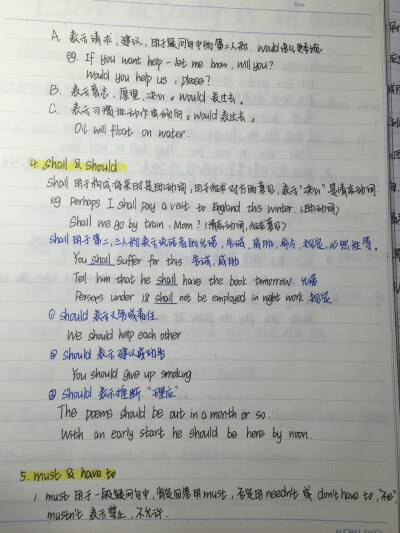 A. 表示请求,建议,用于疑问句中的第二人称. would语气更委婉
eg. If you want help - let me know, will you?
Would you help us, please?
B. 表示意志,愿望,决心。would表过去。
C. 表示习惯性动作或倾向。would表过去。
Oil will float on water.
4. shall & should
shall 用于构成将来时是助动词,用于征求对方的意见,表示"决心"是情态动词
eg. Perhaps I shall pay a visit to England this winter. (助动词)
Shall we go by train, Mom? (情态动词,征求意见)
shall用于第二,三人称表示说话者的允诺,告诫,威胁,命令,规定,必然性等。
You shall suffer for this 告诫,威胁
Tell him that he shall have the book tomorrow. 允诺
Persons under 18 shall not be employed in night work 规定
① should 表示义务或责任
We should help each other
② should 表示建议或劝告
You should give up smoking
③ should 表示推断 "理应".
The poems should be out in a month or so.
With an early start he should be here by noon.
5. must & have to
1. must 用于一般疑问句中,肯定回答用must,否定用needn't 或 don't have to,
mustn't 表示禁止,不允许.